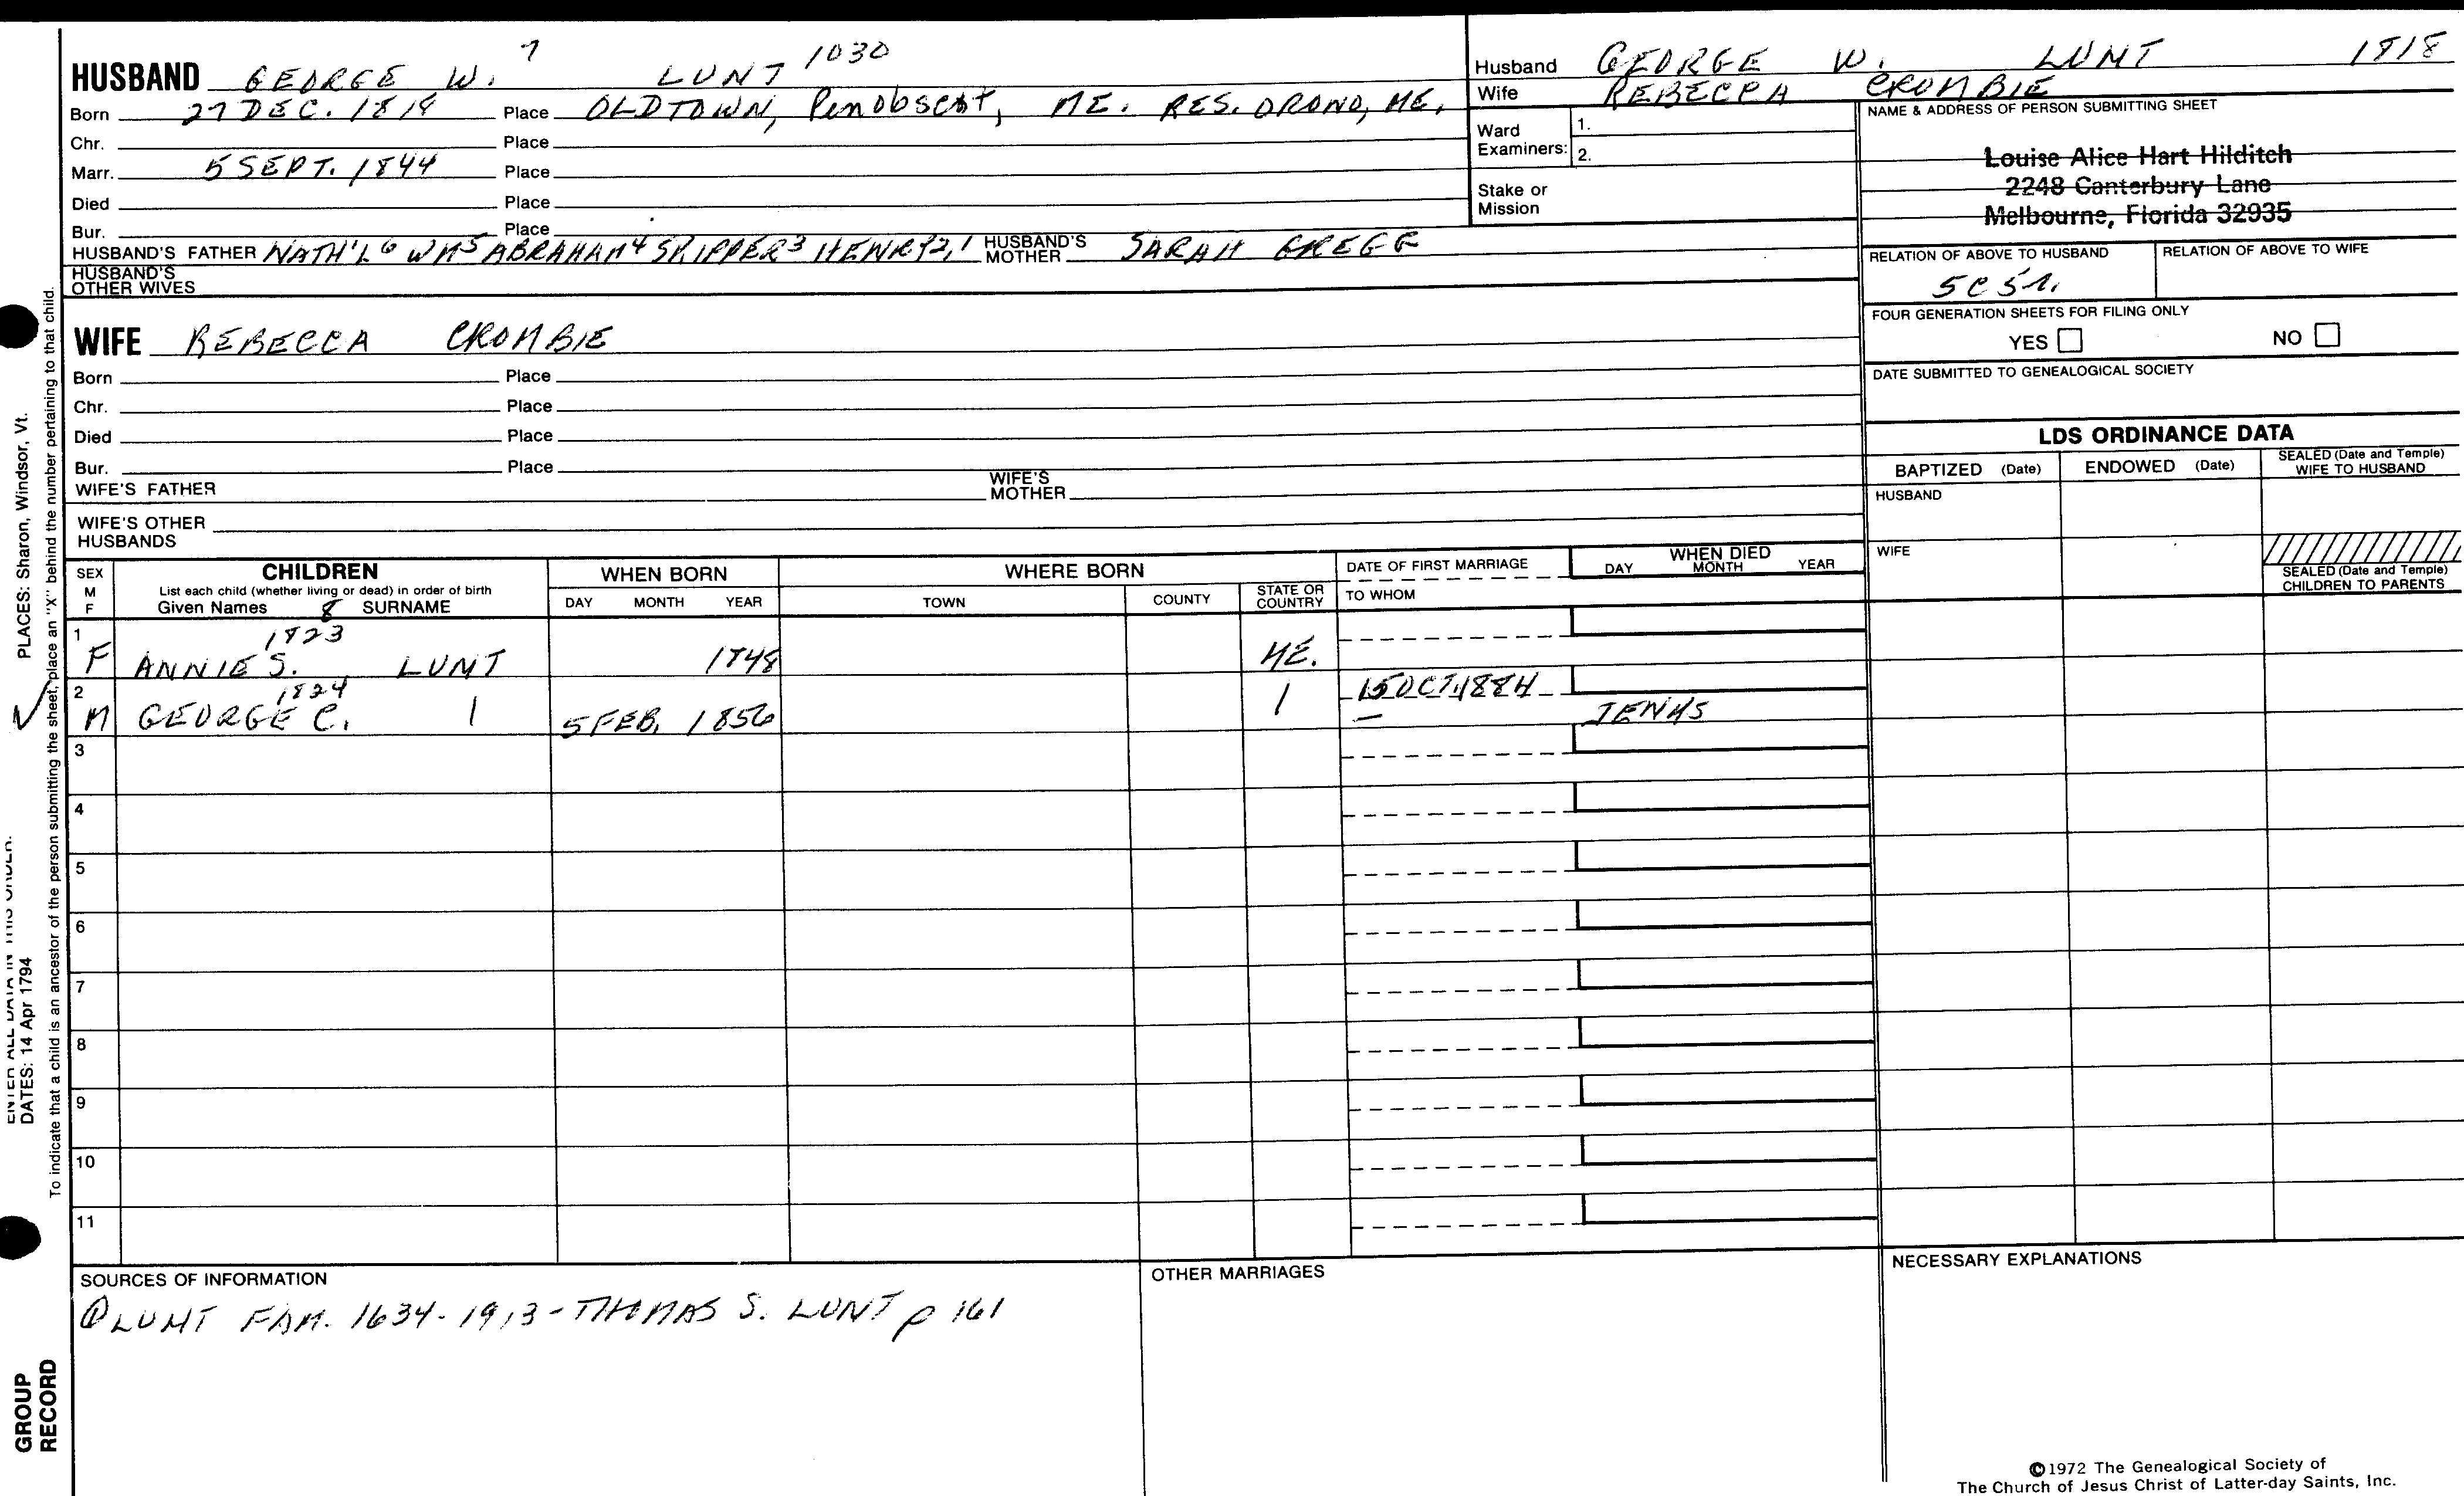 HUSBAND GEORGE W. 7 LUNT 1030
Born 27 DEC. 1818 Place OLDTOWN, Penobscot, ME. RES. ORONO, ME.
Chr. Place
Marr. 5 SEPT. 1844 Place
Died Place
Bur. Place
HUSBAND'S FATHER NATH'L 6 WM 5 ABRAHAM 4 SKIPPER 3 HENRY 2,1 HUSBAND'S MOTHER SARAH GREGG
HUSBAND'S OTHER WIVES
Husband GEORGE W. LUNT 1818
Wife REBECCA CROMBIE
Ward Examiners: 1.
2.
Stake or Mission
NAME & ADDRESS OF PERSON SUBMITTING SHEET
Louise Alice Hart Hilditch
2248 Canterbury Lane
Melbourne, Florida 32935
RELATION OF ABOVE TO HUSBAND RELATION OF ABOVE TO WIFE
5C 5r.
FOUR GENERATION SHEETS FOR FILING ONLY
YES NO
DATE SUBMITTED TO GENEALOGICAL SOCIETY
WIFE REBECCA CROMBIE
Born Place
Chr. Place
Died Place
Bur. Place
WIFE'S FATHER WIFE'S MOTHER
WIFE'S OTHER HUSBANDS
LDS ORDINANCE DATA
BAPTIZED (Date) ENDOWED (Date) SEALED (Date and Temple) WIFE TO HUSBAND
HUSBAND
WIFE
SEALED (Date and Temple) CHILDREN TO PARENTS
SEX M F
CHILDREN
List each child (whether living or dead) in order of birth
Given Names 8 SURNAME
WHEN BORN
DAY MONTH YEAR
WHERE BORN
TOWN COUNTY STATE OR COUNTRY
DATE OF FIRST MARRIAGE
TO WHOM
WHEN DIED
DAY MONTH YEAR
1 1823
F ANNIE S. LUNT 1848 ME.
2 1824 15 OCT. 1884
M GEORGE C. 1 5 FEB. 1856 1 — JENKS
3
4
5
6
7
8
9
10
11
SOURCES OF INFORMATION
① LUNT FAM. 1634-1913 - THOMAS S. LUNT p 161
OTHER MARRIAGES
NECESSARY EXPLANATIONS
©1972 The Genealogical Society of
The Church of Jesus Christ of Latter-day Saints, Inc.
PLACES: Sharon, Windsor, Vt.
ENTER ALL DATA IN THIS ORDER:
DATES: 14 Apr 1794
To indicate that a child is an ancestor of the person submitting the sheet, place an "X" behind the number pertaining to that child.
GROUP
RECORD